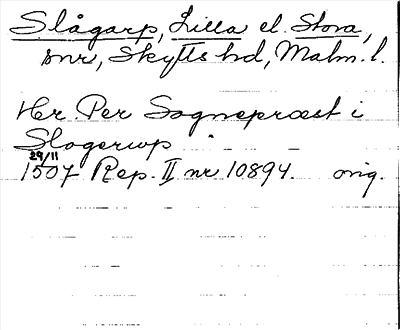 Slågarp, Lilla el. Stora,
snr, Skytts hd, Malm. l.
Her Per Sogneprœst i
Slogerup
29/11
1507 Rep. II nr 10894. orig.